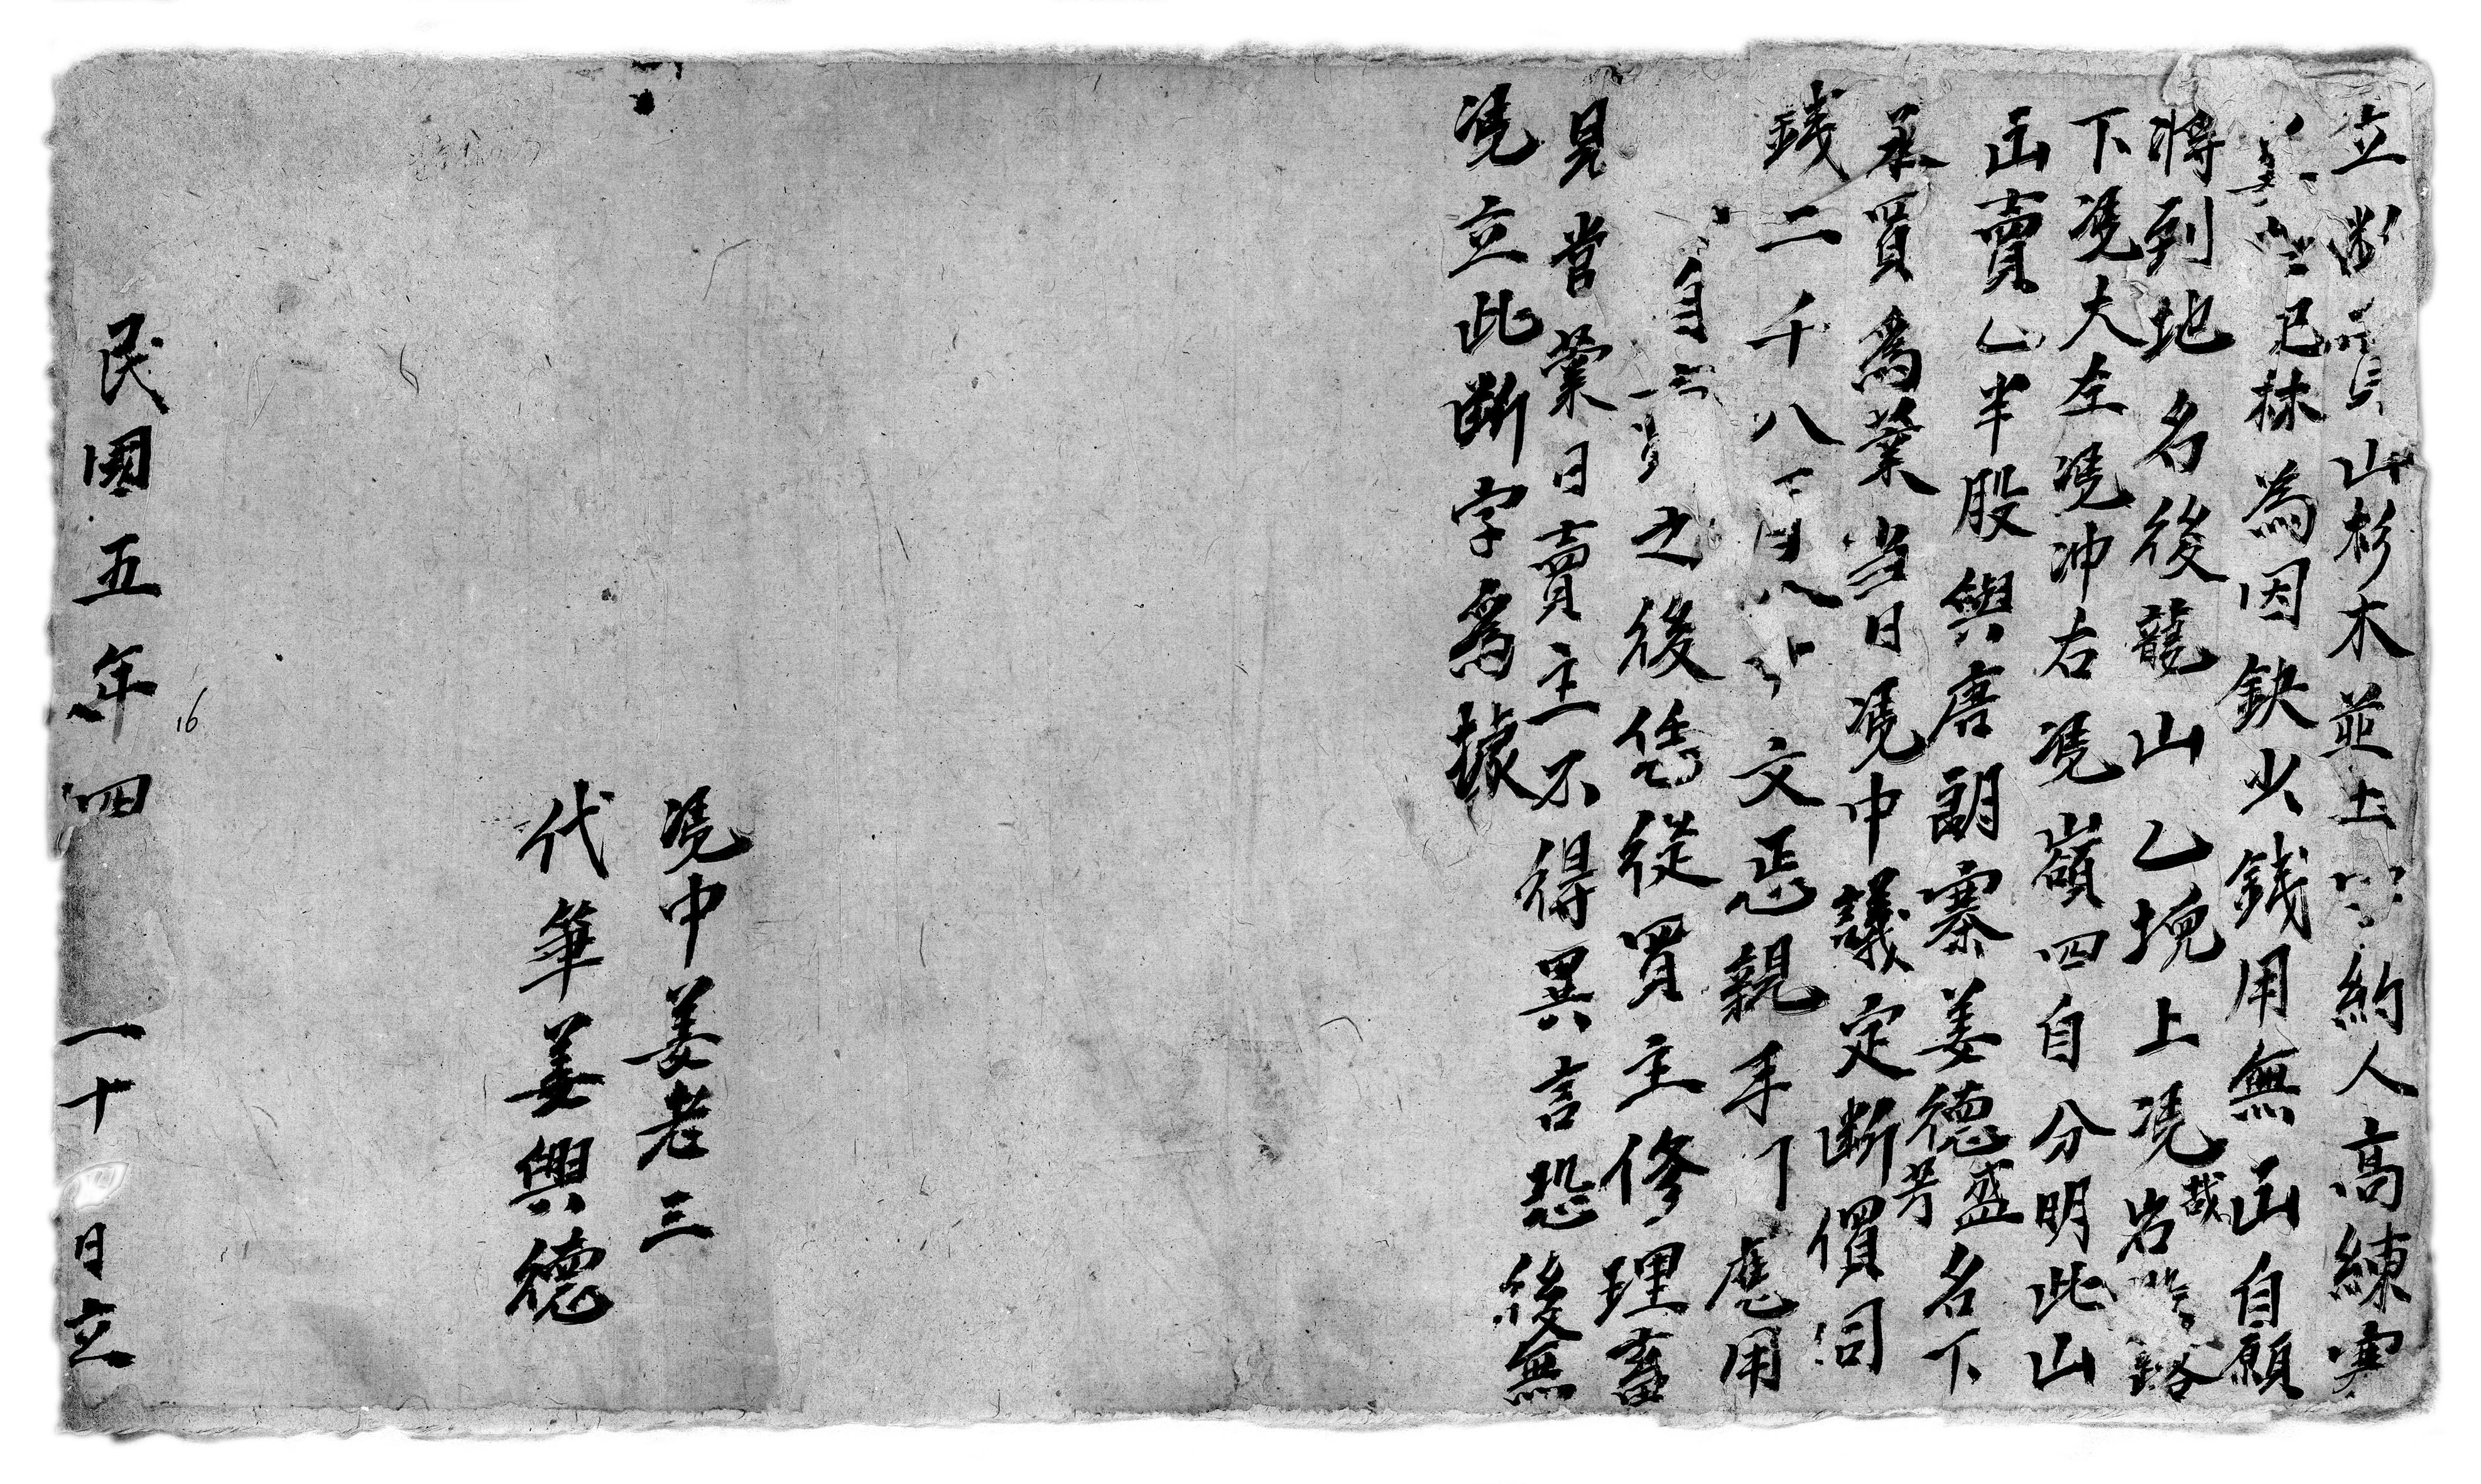 立断賣山杉木並土約人高練寨
姜已林為因缺少錢用無出自願
將到地名後龍山乙塊上凴岩哉路
下凴大左凴冲右凴嶺四自分明此山
出賣乙半股與唐朗寨姜德盛芳名下
承買為業当日凴中議定断價同
錢二千八百八十文忑親手了應用
自之後恁從買主修理畜
見當業日賣主不得異言恐後無
凴立此断字為據
凴中姜老三
代筆姜興德
16
民國五年四一十日立